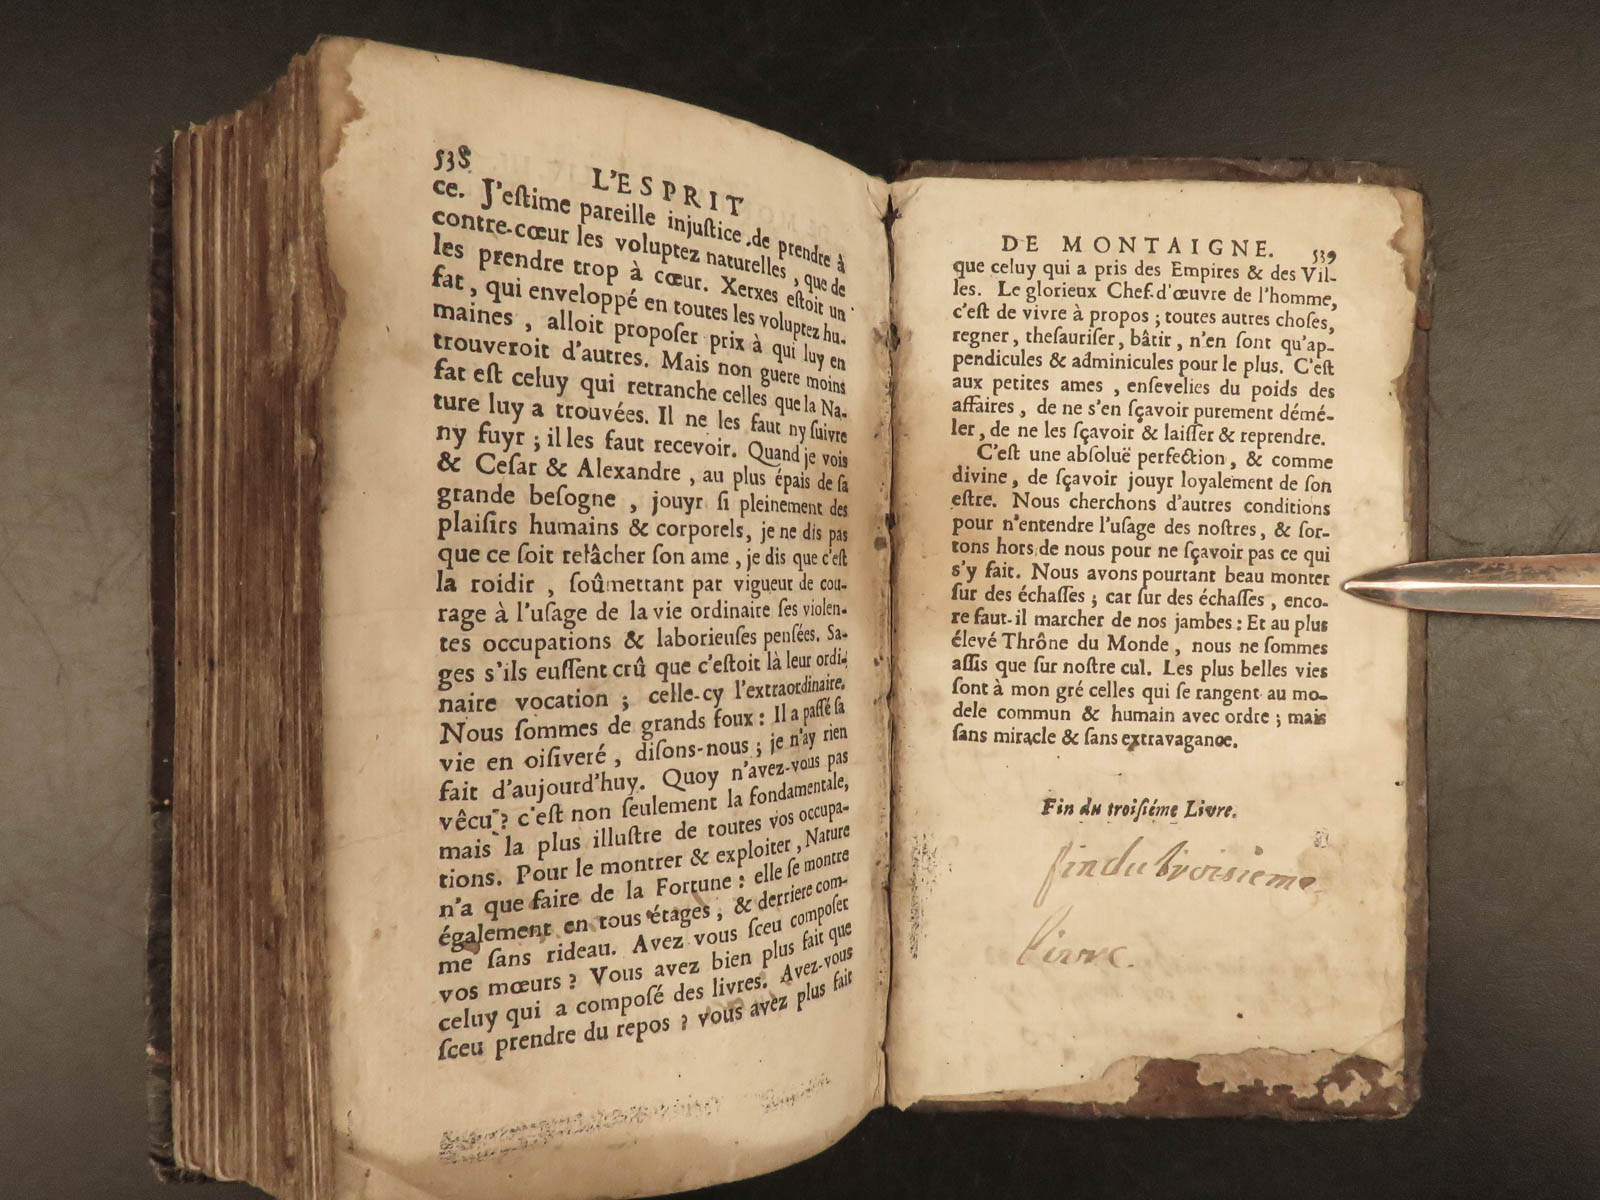 538
L'ESPRIT
ce. J'eſtime pareille injuſtice de prendre à
contre-cœur les voluptez naturelles, que de
les prendre trop à cœur. Xerxes eſtoit un
fat, qui enveloppé en toutes les voluptez hu-
maines, alloit propoſer prix à qui luy en
trouveroit d'autres. Mais non guere moins
fat eſt celuy qui retranche celles que la Na-
ture luy a trouvées. Il ne les faut ny ſuivre
ny fuyr; il les faut recevoir. Quand je vois
& Ceſar & Alexandre, au plus épais de ſa
grande beſogne, jouyr ſi pleinement des
plaiſirs humains & corporels, je ne dis pas
que ce ſoit relâcher ſon ame, je dis que c'eſt
la roidir, ſoûmettant par vigueur de cou-
rage à l'uſage de la vie ordinaire ſes violen-
tes occupations & laborieuſes penſées. Sa-
ges s'ils euſſent crû que c'eſtoit là leur ordi-
naire vocation; celle-cy l'extraordinaire.
Nous ſommes de grands foux: Il a paſſé ſa
vie en oiſiveré, diſons-nous; je n'ay rien
fait d'aujourd'huy. Quoy n'avez-vous pas
vêcu? c'eſt non ſeulement la fondamentale,
mais la plus illuſtre de toutes vos occupa-
tions. Pour le montrer & exploiter, Nature
n'a que faire de la Fortune: elle ſe montre
également en tous étages, & derriere com-
me ſans rideau. Avez vous ſceu compoſer
vos mœurs? Vous avez bien plus fait que
celuy qui a compoſé des livres. Avez-vous
ſceu prendre du repos? vous avez plus fait
DE MONTAIGNE. 539
que celuy qui a pris des Empires & des Vil-
les. Le glorieux Chef-d'œuvre de l'homme,
c'eſt de vivre à propos; toutes autres choſes,
regner, theſauriſer, bâtir, n'en ſont qu'ap-
pendicules & adminicules pour le plus. C'eſt
aux petites ames, enſevelies du poids des
affaires, de ne s'en ſçavoir purement démé-
ler, de ne les ſçavoir & laiſſer & reprendre.
C'eſt une abſoluë perfection, & comme
divine, de ſçavoir jouyr loyalement de ſon
eſtre. Nous cherchons d'autres conditions
pour n'entendre l'uſage des noſtres, & ſor-
tons hors de nous pour ne ſçavoir pas ce qui
s'y fait. Nous avons pourtant beau monter
ſur des échaſſes; car ſur des échaſſes, enco-
re faut-il marcher de nos jambes: Et au plus
élevé Thrône du Monde, nous ne ſommes
aſſis que ſur noſtre cul. Les plus belles vies
ſont à mon gré celles qui ſe rangent au mo-
dele commun & humain avec ordre; mais
ſans miracle & ſans extravagance.
Fin du troiſiéme Livre.
fin du troisieme
livre.